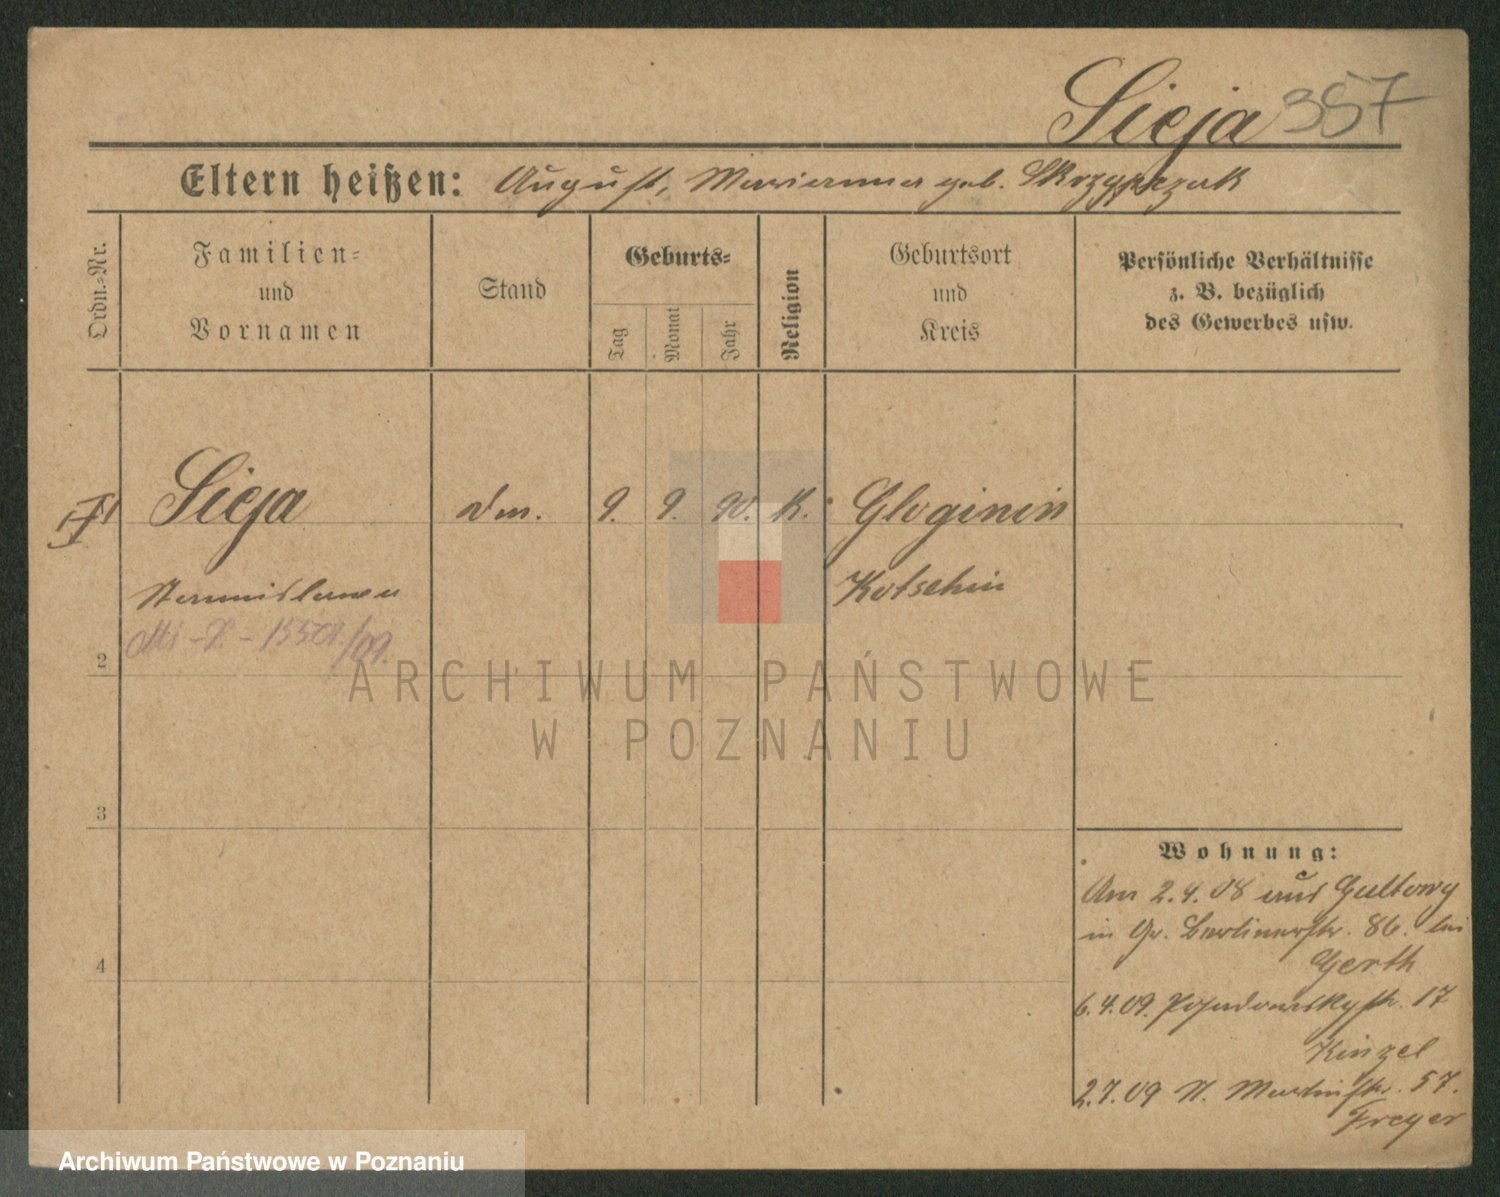 Sieja 357
Eltern heißen: August, Marianna geb. Skrzypczak
Ordn.-Nr.
Familien-
und
Vornamen
Stand
Geburts-
Tag
Monat
Jahr
Religion
Geburtsort
und
Kreis
Persönliche Verhältnisse
z. B. bezüglich
des Gewerbes usw.
Sieja
Dm. 9. 9. 90. K. Gloginin
Stanislawa
Koschmin
2
3
4
Wohnung:
Am 2.4.08 aus Gultowy
in Gr. Berlinerstr. 86. bei
Gerth
6.4.09. Posadowskystr. 17
Kinzel
2.7.09 St. Martinstr. 57.
Freyer
ARCHIWUM PAŃSTWOWE
W POZNANIU
Archiwum Państwowe w Poznaniu